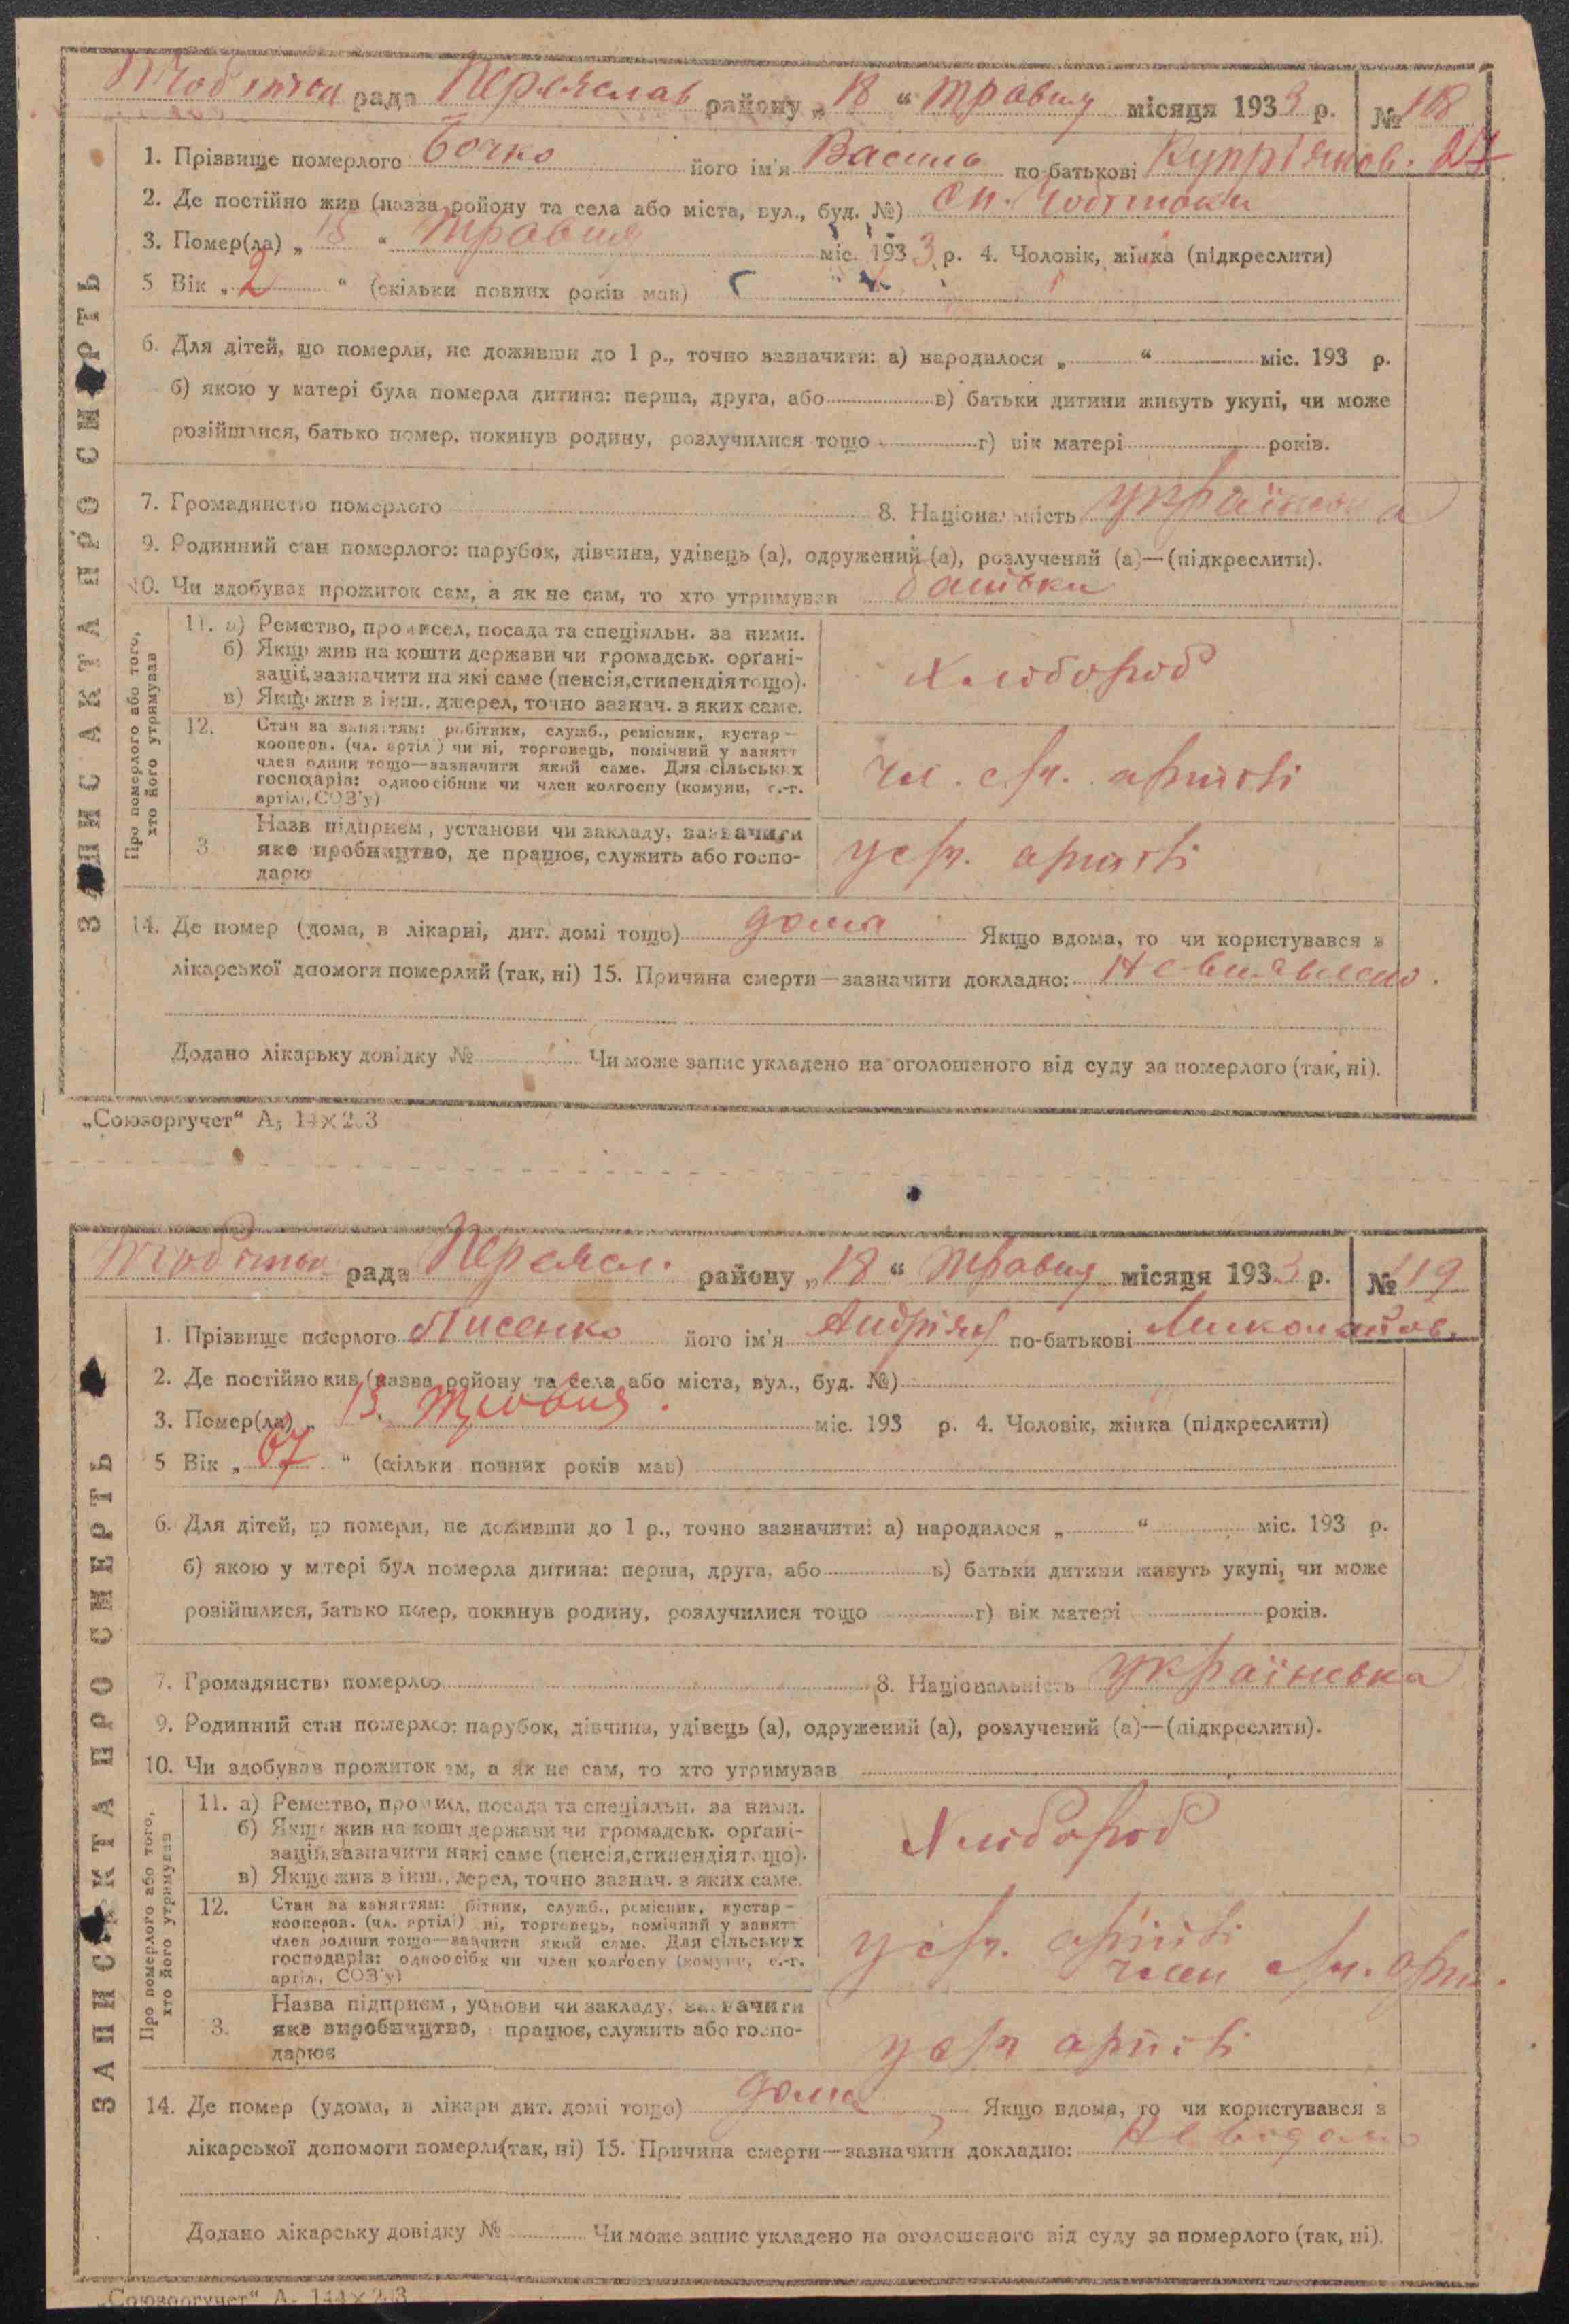 рада Переяслав району „ 18 “ травня місяця 1933 р. № 118
1. Прізвище померлого Бочко його ім'я Василь по-батькові Купріянов. 24
2. Де постійно жив (назва ройону та села або міста, вул., буд. №)
3. Помер(ла) „ 18 “ травня міс. 1933 р. 4. Чоловік, жінка (підкреслити)
5 Вік „ 2 “ (скільки повних років мав)
6. Для дітей, що померли, не доживши до 1 р., точно зазначити: а) народилося „ “ міс. 193 р.
б) якою у матері була померла дитина: перша, друга, або в) батьки дитини живуть укупі, чи може
розійшлися, батько помер, покинув родину, розлучилися тощо г) вік матері років.
7. Громадянство померлого 8. Національність українська
9. Родинний стан померлого: парубок, дівчина, удівець (а), одружений (а), розлучений (а)—(підкреслити).
10. Чи здобував прожиток сам, а як не сам, то хто утримував батьки
11. а) Ремество, промисел, посада та спеціяльн. за ними.
б) Якщо жив на кошти держави чи громадськ. орґані-
зації, зазначити на які саме (пенсія, стипендія тощо).
в) Якщо жив з інш., джерел, точно зазнач. з яких саме.
Хлібороб
12. Стан за заняттям: робітник, служб., ремісник, кустар—
кооперов. (чл. артілі) чи ні, торговець, помічний у занятт
член родини тощо—зазначити який саме. Для сільських
господарів: одноосібник чи член колгоспу (комуни, с.-г.
артілі, СОЗ'у)
чл. с/г. артілі
3 Назв підприєм, установи чи закладу, зазначити
яке виробництво, де працює, служить або госпо-
дарює
у с/г. артілі
14. Де помер (дома, в лікарні, дит. домі тощо) дома Якщо вдома, то чи користувався з
лікарської допомоги померлий (так, ні) 15. Причина смерти—зазначити докладно: Не виявлено.
Додано лікарьку довідку № Чи може запис укладено на оголошеного від суду за померлого (так, ні).
ЗАПИС АКТА ПРО СМЕРТЬ
Про померлого або того,
хто його утримував
„Союзоргучет“ А5
рада Переясл. району „ 18 “ травня місяця 1933 р. № 119
1. Прізвище померлого Лисенко його ім'я Андрій по-батькові
2. Де постійно жив (назва ройону та села або міста, вул., буд. №)
3. Помер(ла) „ травня. міс. 193 р. 4. Чоловік, жінка (підкреслити)
5 Вік „ 67 “ (скільки повних років мав)
6. Для дітей, що померли, не доживши до 1 р., точно зазначити: а) народилося „ “ міс. 193 р.
б) якою у матері була померла дитина: перша, друга, або в) батьки дитини живуть укупі, чи може
розійшлися, батько помер, покинув родину, розлучилися тощо г) вік матері років.
7. Громадянство померлого 8. Національність українська
9. Родинний стан померлого: парубок, дівчина, удівець (а), одружений (а), розлучений (а)—(підкреслити).
10. Чи здобував прожиток сам, а як не сам, то хто утримував
11. а) Ремество, промисел, посада та спеціяльн. за ними.
б) Якщо жив на кошти держави чи громадськ. орґані-
зацій, зазначити на які саме (пенсія, стипендія тощо).
в) Якщо жив з інш., джерел, точно зазнач. з яких саме.
Хлібороб
12. Стан за заняттям: робітник, служб., ремісник, кустар—
кооперов. (чл. артілі) чи ні, торговець, помічний у занятт
член родини тощо—зазначити який саме. Для сільських
господарів: одноосібник чи член колгоспу (комуни, с.-г.
артілі, СОЗ'у)
у с/г. артілі
член с/г. арт.
3. Назва підприєм, установи чи закладу, зазначити
яке виробництво, працює, служить або госпо-
дарює
у с/г артілі
14. Де помер (удома, в лікарн дит. домі тощо) дома Якщо вдома, то чи користувався з
лікарської допомоги померлий (так, ні) 15. Причина смерти—зазначити докладно: Невідомо
Додано лікарську довідку № Чи може запис укладено на оголошеного від суду за померлого (так, ні).
ЗАПИС АКТА ПРО СМЕРТЬ
Про померлого або того,
хто його утримував
„Союзоргучет“ А